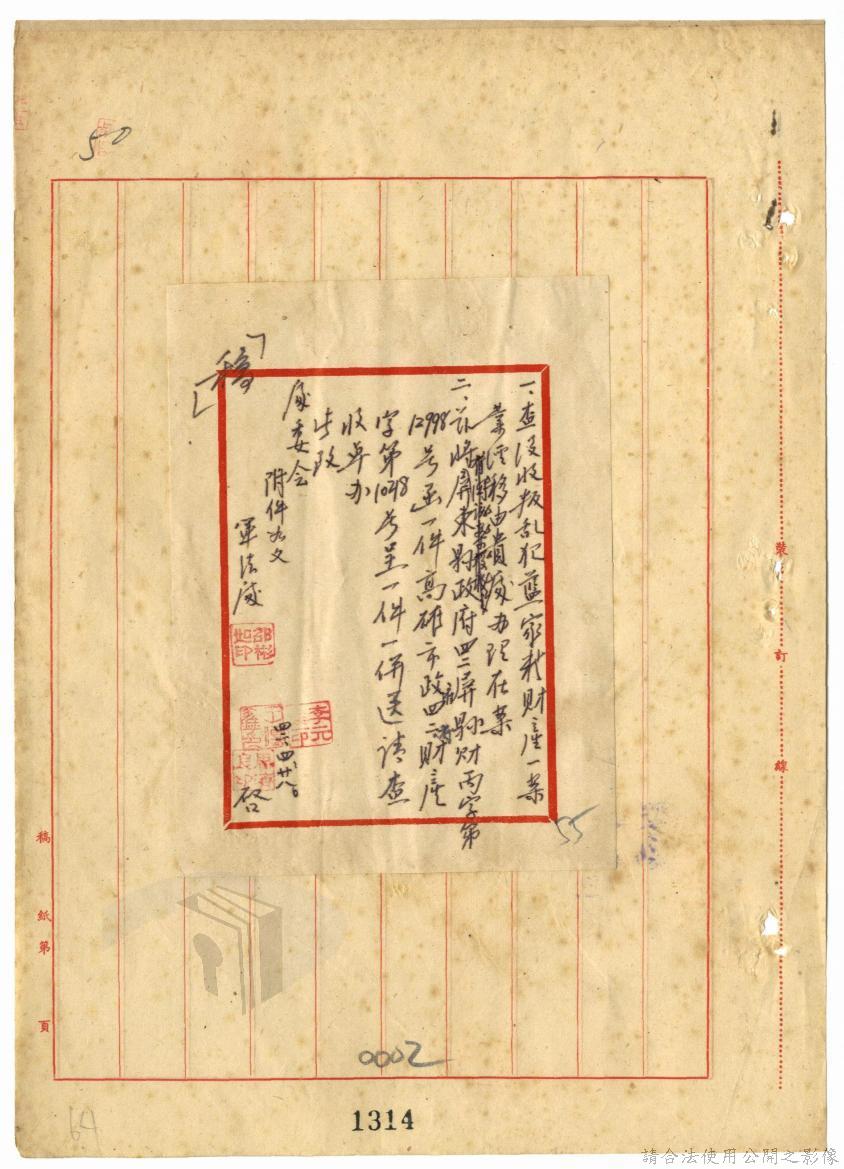 50
「稿」
一、查沒收叛乱犯藍家?財產一案
業經移由貴處办理在案
二、茲將屏東縣政府四二屏縣財丙字第
12998号函一件高雄市政府四二財產
字第1048号呈一件一併送請查
收卓办
此致
處委会
附件如文
軍法處
邵彬如印
李元
四二四廿八
啓
55
裝
訂
線
稿紙第頁
0002
1314
64
請合法使用公開之影像